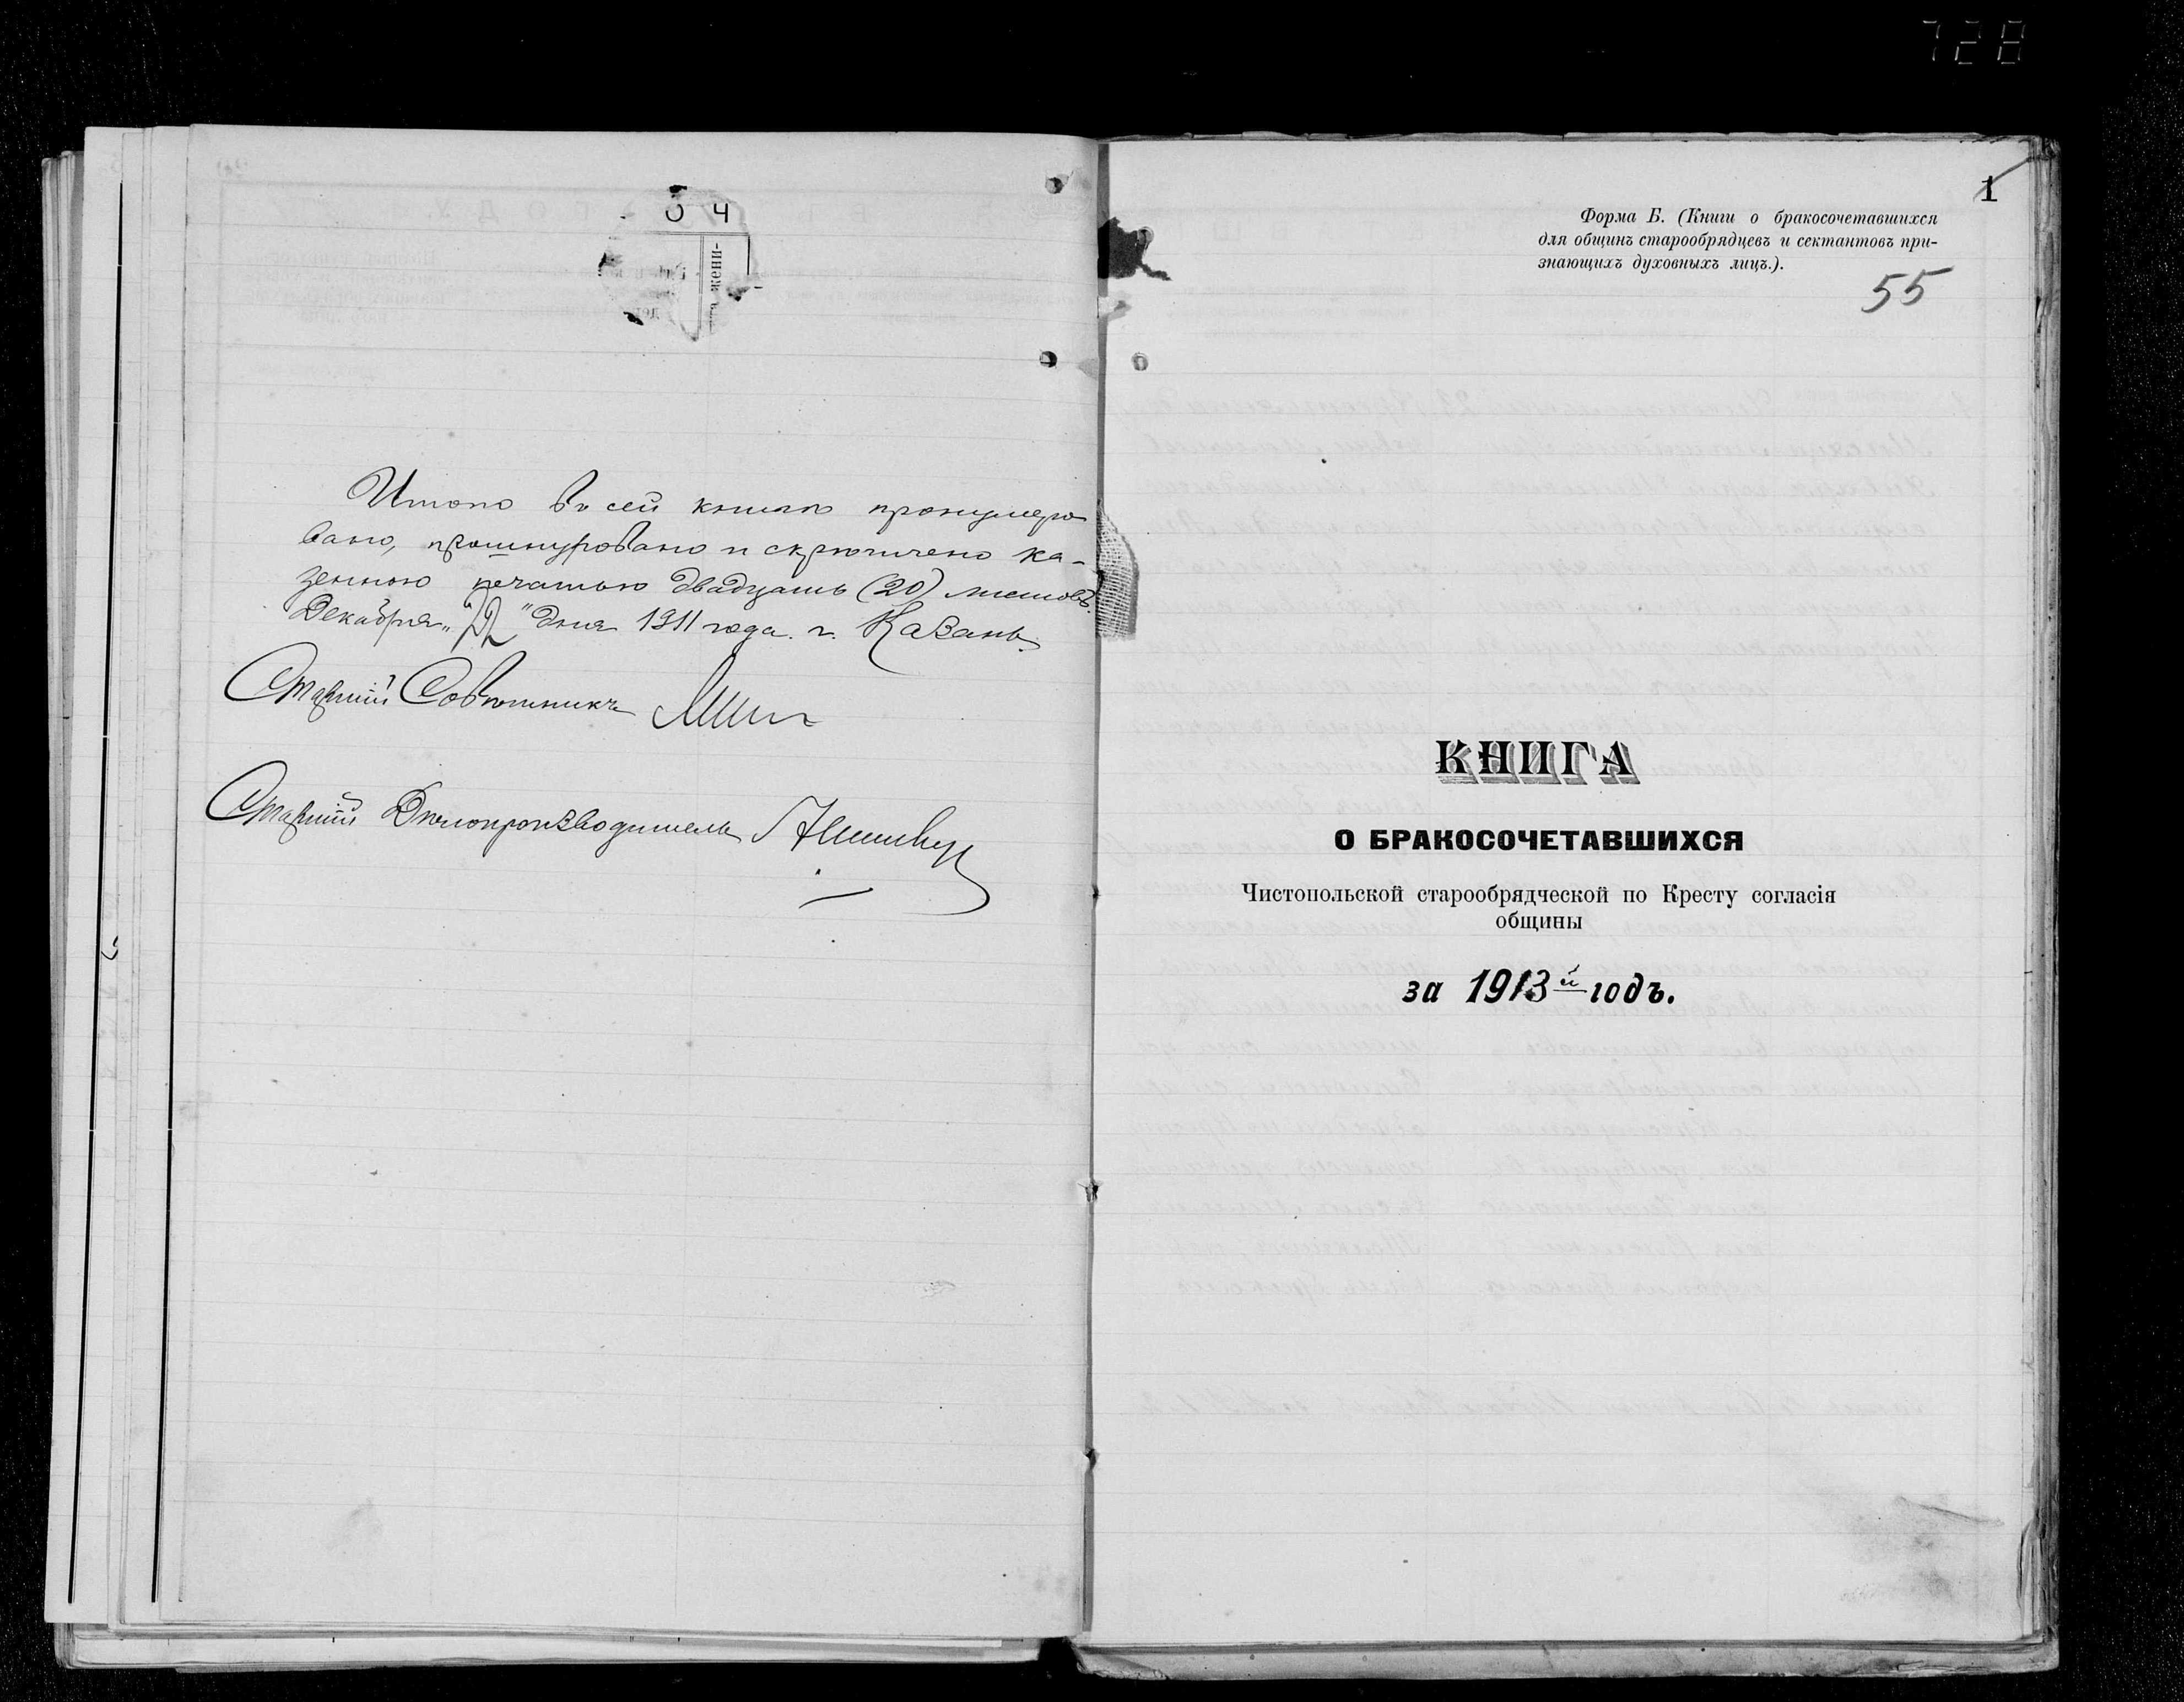 728
Итого въ сей книгѣ пронумеро
вано, прошнуровано и скрѣплено ка-
зенною печатью двадцать (20) листовъ.
Декабря „ " дня 1911 года. г. Казань.
Старшій Совѣтникъ
Старшій Дѣлопроизводитель
жени-
1
Форма Б. (Книги о бракосочетавшихся
для общинъ старообрядцевъ и сектантовъ при-
знающихъ духовныхъ лицъ.).
55
КНИГА
О БРАКОСОЧЕТАВШИХСЯ
Чистопольской старообрядческой по Кресту согласія
общины
за 1913й годъ.